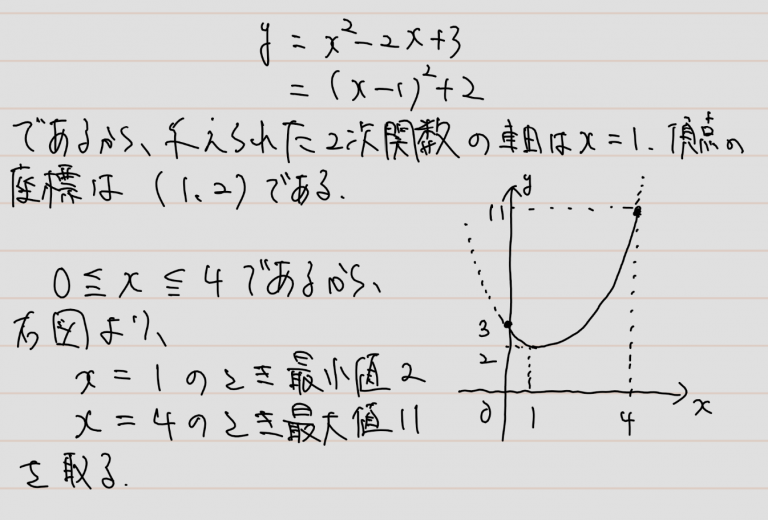 y = x²-2x+3
= (x-1)²+2
であるから、与えられた2次関数の軸はx=1. 頂点の
座標は (1, 2) である.
0 ≦ x ≦ 4 であるから、
右図より、
x = 1 のとき最小値 2
x = 4 のとき最大値 11
を取る.
y
11
3
2
0 1 4 x